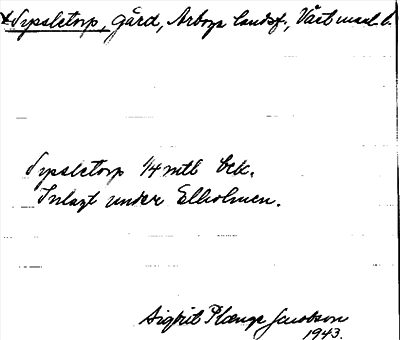 +Sypsletorp, gård, Arboga landsf., Västmanl. l.
Sypsletorp 1/4 mtl Eck.
Inlagt under Elholmen.
Sigfrit Plænge Jacobson
1943.